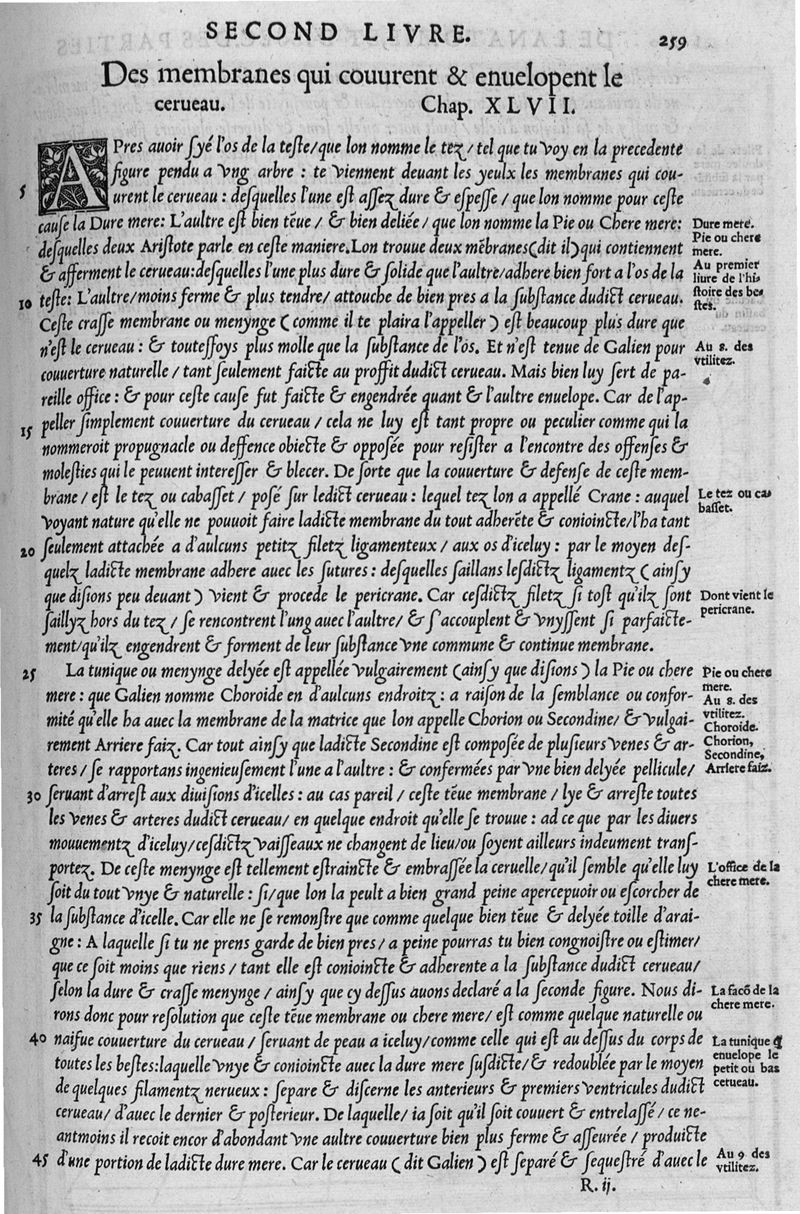 SECOND LIVRE.
259
Des membranes qui couurent & enuelopent le
cerueau. Chap. XLVII.
APres auoir syé l'os de la teste/que lon nomme le tez/tel que tu voy en la precedente
figure pendu a vng arbre : te viennent deuant les yeulx les membranes qui cou-
5 urent le cerueau : desquelles l'une est assez dure & espesse / que lon nomme pour ceste
cause la Dure mere: L'aultre est bien tēue / & bien deliée / que lon nomme la Pie ou Chere mere:
desquelles deux Aristote parle en ceste maniere. Lon trouue deux mēbranes (dit il) qui contiennent
& afferment le cerueau: desquelles l'une plus dure & solide que l'aultre/adhere bien fort a l'os de la
10 teste: L'aultre/moins ferme & plus tendre/ attouche de bien pres a la substance dudict cerueau.
Ceste crasse membrane ou menynge (comme il te plaira l'appeller) est beaucoup plus dure que
n'est le cerueau : & toutesfoys plus molle que la substance de l'os. Et n'est tenue de Galien pour
couuerture naturelle / tant seulement faicte au proffit dudict cerueau. Mais bien luy sert de pa-
reille office : & pour ceste cause fut faicte & engendrée quant & l'aultre enuelope. Car de l'ap-
15 peller simplement couuerture du cerueau / cela ne luy est tant propre ou peculier comme qui la
nommeroit propugnacle ou deffence obiecte & opposée pour resister a l'encontre des offenses &
molesties qui le peuuent interesser & blecer. De sorte que la couuerture & defense de ceste mem-
brane / est le tez ou cabasset / posé sur ledict cerueau : lequel tez lon a appellé Crane : auquel
voyant nature qu'elle ne pouuoit faire ladicte membrane du tout adherēte & conioincte/l'ha tant
20 seulement attachée a d'aulcuns petitz filetz ligamenteux / aux os d'iceluy : par le moyen des-
quelz ladicte membrane adhere auec les sutures : desquelles saillans lesdictz ligamentz (ainsy
que disions peu deuant) vient & procede le pericrane. Car cesdictz filetz si tost qu'ilz sont
saillyz hors du tez / se rencontrent l'ung auec l'aultre/ & s'accouplent & vnyssent si parfaicte-
ment/qu'ilz engendrent & forment de leur substance vne commune & continue membrane.
25 La tunique ou menynge delyée est appellée vulgairement (ainsy que disions) la Pie ou chere
mere : que Galien nomme Choroide en d'aulcuns endroitz : a raison de la semblance ou confor-
mité qu'elle ha auec la membrane de la matrice que lon appelle Chorion ou Secondine/ & vulgai-
rement Arriere faiz. Car tout ainsy que ladicte Secondine est composée de plusieurs venes & ar-
teres / se rapportans ingenieusement l'une a l'aultre : & confermées par vne bien delyée pellicule/
30 seruant d'arrest aux diuisions d'icelles : au cas pareil / ceste tēue membrane / lye & arreste toutes
les venes & arteres dudict cerueau/ en quelque endroit qu'elle se trouue : ad ce que par les diuers
mouuementz d'iceluy/cesdictz vaisseaux ne changent de lieu/ou soyent ailleurs indeument trans-
portez. De ceste menynge est tellement estraincte & embrassée la ceruelle/qu'il semble qu'elle luy
soit du tout vnye & naturelle : si/que lon la peult a bien grand peine apercepuoir ou escorcher de
35 la substance d'icelle. Car elle ne se remonstre que comme quelque bien tēue & delyée toille d'arai-
gne : A laquelle si tu ne prens garde de bien pres / a peine pourras tu bien congnoistre ou estimer/
que ce soit moins que riens / tant elle est conioincte & adherente a la substance dudict cerueau/
selon la dure & crasse menynge / ainsy que cy dessus auons declaré a la seconde figure. Nous di-
rons donc pour resolution que ceste tēue membrane ou chere mere/ est comme quelque naturelle ou
40 naifue couuerture du cerueau / seruant de peau a iceluy/comme celle qui est au dessus du corps de
toutes les bestes: laquelle vnye & conioincte auec la dure mere susdicte/ & redoublée par le moyen
de quelques filamentz nerueux : separe & discerne les anterieurs & premiers ventricules dudict
cerueau/ d'auec le dernier & posterieur. De laquelle/ ia soit qu'il soit couuert & entrelassé / ce ne-
antmoins il recoit encor d'abondant vne aultre couuerture bien plus ferme & asseurée / produicte
45 d'une portion de ladicte dure mere. Car le cerueau (dit Galien) est separé & sequestré d'auec le
R. ij.
Dure mere.
Pie ou chere
mere.
Au premier
liure de l'hi-
stoire des be-
stes.
Au 8. des
vtilitez.
Le tez ou ca-
basset.
Dont vient le
pericrane.
Pie ou chere
mere.
Au 8. des
vtilitez.
Choroide.
Chorion,
Secondine,
Arriere faiz.
L'office de la
chere mere.
La facō de la
chere mere.
La tunique q̄
enuelope le
petit ou bas
cerueau.
Au 9 des
vtilitez.